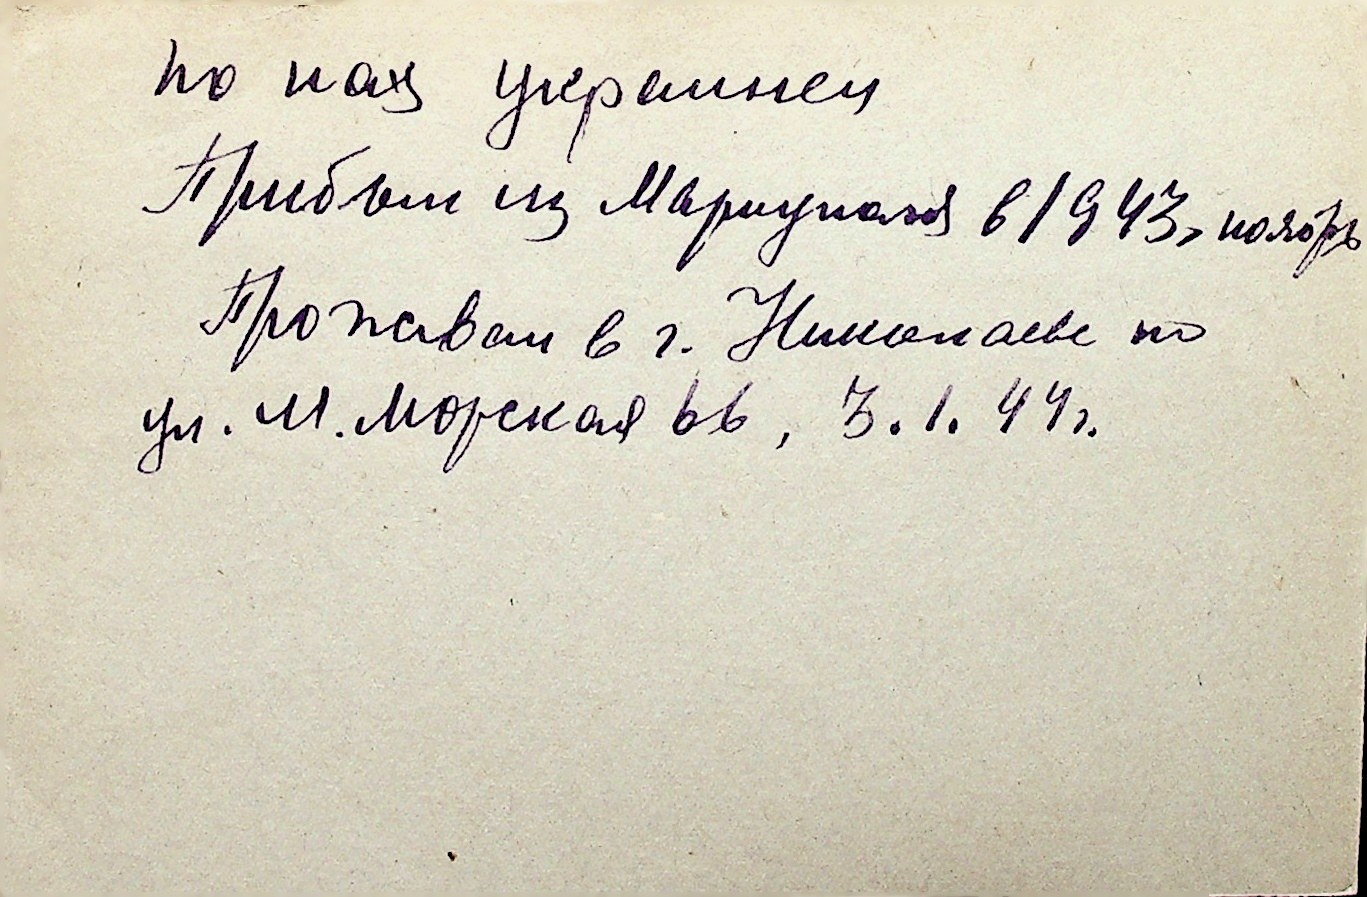 по нац украинец
Прибыл из Мариуполя в 1943, ноябрь
Проживал в г. Николаеве по
ул. М. Морская 66, 3.1.44г.